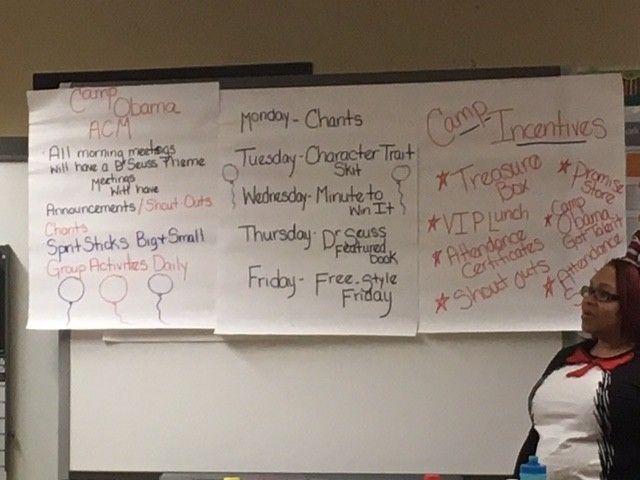 Camp
Obama
ACM
All morning meetings
will have a Dr Seuss Theme
Meetings
will have
Announcements/Shout Outs
Chants
Sprit Sticks Big + Small
Group Activities Daily
Monday - Chants
Tuesday - Character Trait
Skit
Wednesday - Minute to
Win It
Thursday - Dr Seuss
Featured
book
Friday - Free-Style
Friday
Camp
Incentives
* Treasure
Box
* VIP Lunch
* Attendance
Certificates
* Shout outs
* Promise
Store
* Camp
Obama
Got Talent
* Attendance